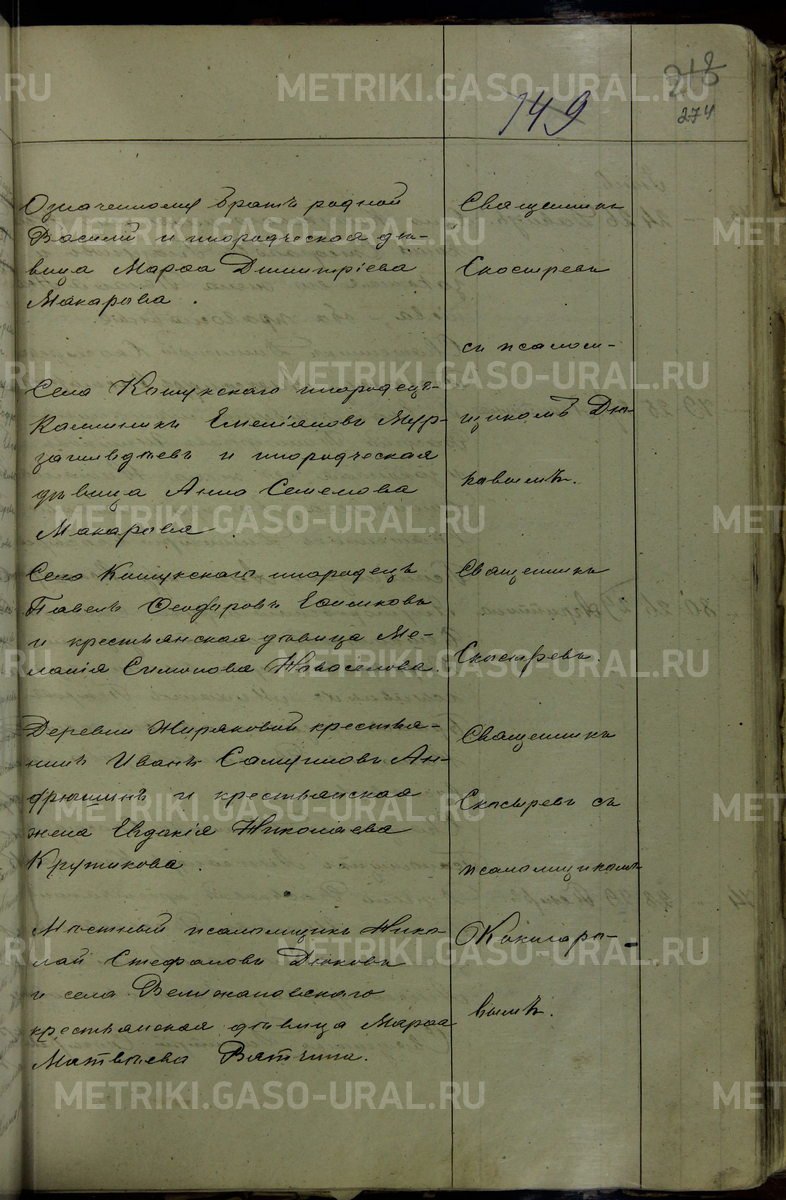 149
218
274
Означенному братъ родной
Василий и инородческая дѣ-
вица Марѳа Димитріева
Макарова.
Села Кошукскаго инородецъ
Каллиникъ Емеліановъ Мур-
и инородческая
дѣвица Анна Семенова
Макарова
Села Кошукскаго инородецъ
Павелъ Ѳеодоровъ
и крестьянская дѣвица Ме-
ланія Симонова Новоселова.
Деревни Жиряковой крестья-
нинъ Иванъ Самуиловъ Ан-
дрюшинъ и крестьянская
жена Евдокія Николаева
Кружикова.
Мѣстный псаломщикъ Нико-
лай Стефановъ Дюковъ
и села Велижановскаго
крестьянская дѣвица Марѳа
Матвѣева Вятчина.
Священникъ
Скосыревъ
съ псалом-
щикомъ Дю-
ковымъ.
Священникъ
Скосыревъ.
Священникъ
Скосыревъ съ
псаломщикомъ
Кокшаро-
вымъ.
METRIKI.GASO-URAL.RU